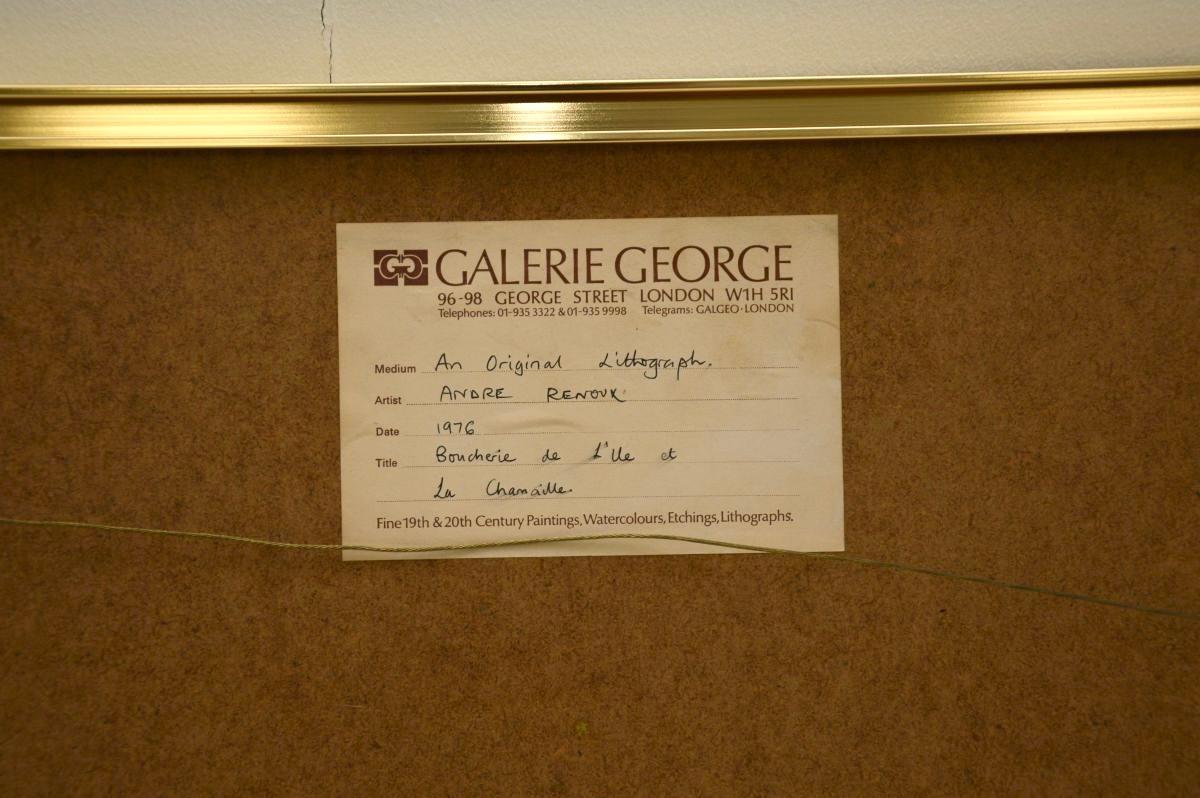 GALERIE GEORGE
96-98 GEORGE STREET LONDON W1H 5RI
Telephones: 01-935 3322 & 01-935 9998 Telegrams: GALGEO·LONDON
Medium An Original Lithograph.
Artist ANDRE RENOUX
Date 1976
Title Boucherie de L'Ile et
La Chamaille.
Fine 19th & 20th Century Paintings, Watercolours, Etchings, Lithographs.